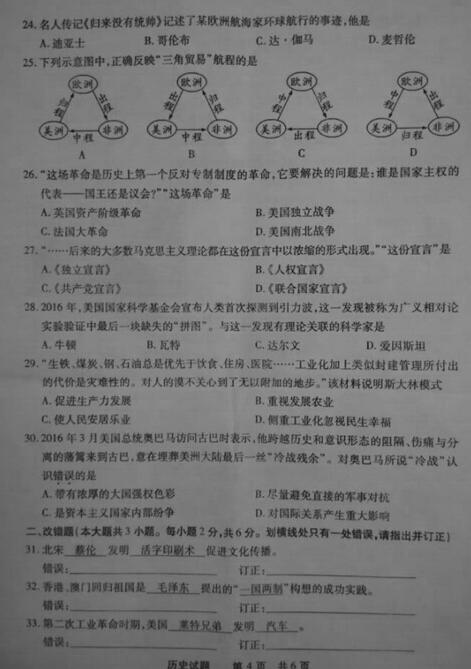 24. 名人传记《归来没有统帅》记述了某欧洲航海家环球航行的事迹,他是
A. 迪亚士 B. 哥伦布 C. 达·伽马 D. 麦哲伦
25. 下列示意图中,正确反映“三角贸易”航程的是
欧洲 欧洲 欧洲 欧洲
归程 出程 出程 归程 中程 归程 中程 出程
美洲 中程 非洲 美洲 中程 非洲 美洲 出程 非洲 美洲 归程 非洲
A B C D
26. “这场革命是历史上第一个反对专制制度的革命,它要解决的问题是:谁是国家主权的
代表——国王还是议会?”“这场革命”是
A. 英国资产阶级革命 B. 美国独立战争
C. 法国大革命 D. 美国南北战争
27. “……后来的大多数马克思主义理论都在这份宣言中以浓缩的形式出现。”“这份宣言”是
A.《独立宣言》 B.《人权宣言》
C.《共产党宣言》 D.《联合国家宣言》
28. 2016年,美国国家科学基金会宣布人类首次探测到引力波,这一发现被称为广义相对论
实验验证中最后一块缺失的“拼图”。与这一发现有理论关联的科学家是
A. 牛顿 B. 瓦特 C. 达尔文 D. 爱因斯坦
29. “生铁、煤炭、钢、石油总是优先于饮食、住房、医院……工业化加上类似封建管理所付出
的代价是灾难性的。对人的漠不关心到了无以附加的地步。”该材料说明斯大林模式
A. 促进生产力发展 B. 重视发展农业
C. 使人民安居乐业 D. 侧重工业化忽视民生幸福
30. 2016年3月美国总统奥巴马访问古巴时表示,他跨越历史和意识形态的阻隔、伤痛与分
离的藩篱来到古巴,意在埋葬美洲大陆最后一丝“冷战残余”。对奥巴马所说“冷战”认
识错误的是
A. 带有浓厚的大国强权色彩 B. 尽量避免直接的军事对抗
C. 是资本主义国家内部纷争 D. 对国际关系产生重大影响
二、改错题(本大题共3小题。每小题2分,共6分。划横线处只有一处错误,请指出并订正)
31. 北宋 蔡伦 发明 活字印刷术 促进文化传播。
错误: 订正:
32. 香港、澳门回归祖国是 毛泽东 提出的“一国两制”构想的成功实践。
错误: 订正:
33. 第二次工业革命时期,美国 莱特兄弟 发明 汽车 。
错误: 订正:
历史试题 第4页 共6页